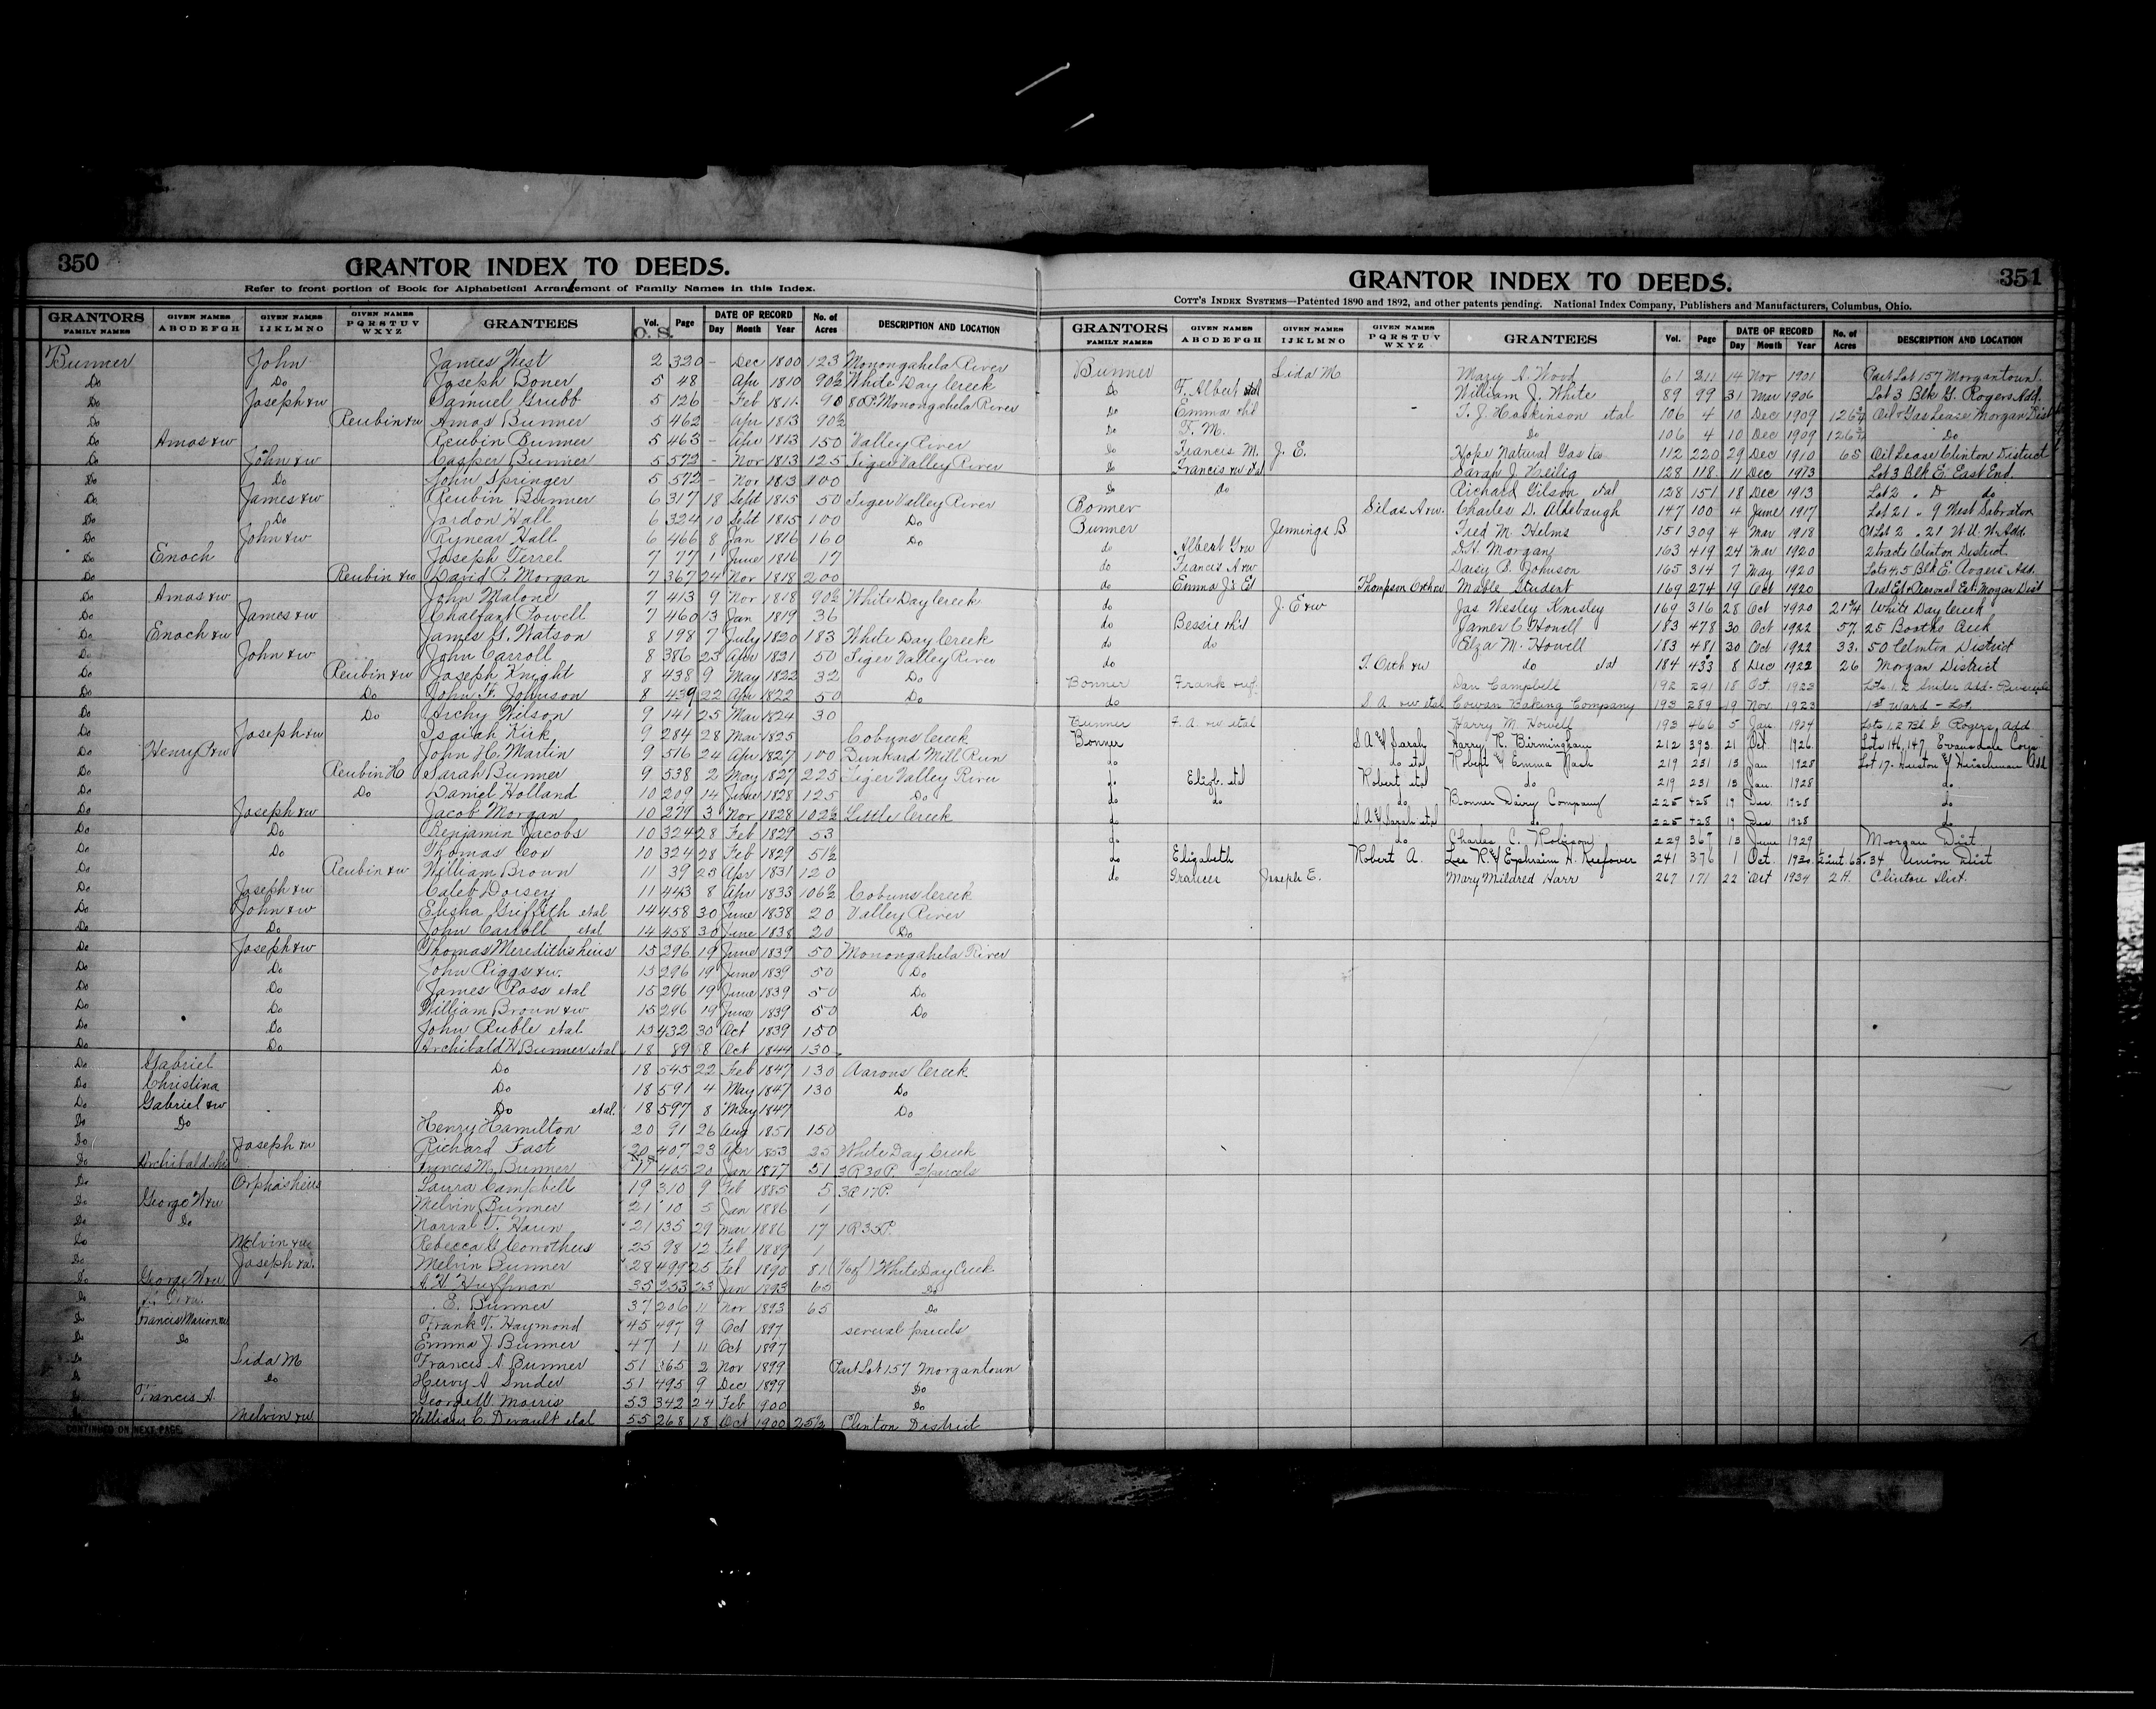 350
GRANTOR INDEX TO DEEDS.
Refer to front portion of Book for Alphabetical Arrangement of Family Names in this Index.
GRANTORS FAMILY NAMES GIVEN NAMES A B C D E F G H GIVEN NAMES I J K L M N O GIVEN NAMES P Q R S T U V W X Y Z GRANTEES Vol. Page DATE OF RECORD Day Month Year No. of Acres DESCRIPTION AND LOCATION
O. S.
Bunner John James West 2 320 - Dec 1800 123 Monongahela River
Do Do Joseph Boner 5 48 - Apr 1810 90½ White Day Creek
Do Joseph &w Samuel Grubb 5 126 - Feb 1811 90 80P. Monongahela River
Do Reubin &w Amos Bunner 5 462 - Apr 1813 90½
Do Amos &w Reubin Bunner 5 463 - Apr 1813 150 Valley River
Do John &w Casper Bunner 5 572 - Nov 1813 125 Tiger Valley River
Do Do John Springer 5 572 - Nov 1813 100
Do James &w Reubin Bunner 6 317 18 Sept 1815 50 Tiger Valley River
Do Do Jordon Hall 6 324 10 Sept 1815 100 Do
Do John &w Rynear Hall 6 466 8 Jan 1816 160 Do
Do Enoch Joseph Ferrel 7 77 1 June 1816 17
Do Reubin &w David P. Morgan 7 367 24 Nov 1818 200
Do Amos &w John Malone 7 413 9 Nov 1818 90½ White Day Creek
Do James &w Chalfant Powell 7 460 3 Jan 1819 36
Do Enoch &w James G. Watson 8 198 7 July 1820 183 White Day Creek
Do John &w John Carroll 8 386 23 Apr 1821 50 Tiger Valley River
Do Reubin &w Joseph Knight 8 438 9 May 1822 32 Do
Do Do John F. Johnson 8 439 22 Apr 1822 50 Do
Do Do Archy Wilson 9 141 25 Mar 1824 30
Do Joseph &w Isaiah Kirk 9 284 28 Mar 1825 Cobuns Creek
Do Henry P &w John H. Martin 9 516 24 Apr 1827 100 Dunkard Mill Run
Do Reubin H. Sarah Bunner 9 538 2 May 1827 225 Tiger Valley River
Do Do Daniel Holland 10 209 14 June 1828 125 Do
Do Joseph &w Jacob Morgan 10 279 3 Nov 1828 102½ Little Creek
Do Do Benjamin Jacobs 10 324 28 Feb 1829 53
Do Do Thomas Cox 10 324 28 Feb 1829 51½
Do Reubin &w William Brown 11 39 25 Apr 1831 120
Do Joseph &w Caleb Dorsey 11 443 8 Apr 1833 106½ Cobuns Creek
Do John &w Elisha Griffith etal 14 458 30 June 1838 20 Valley River
Do Do John Carroll etal 14 458 30 June 1838 20 Do
Do Joseph &w Thomas Merediths heirs 15 296 19 June 1839 50 Monongahela River
Do Do John Riggs &w. 15 296 19 June 1839 50 Do
Do Do James Ross etal 15 296 19 June 1839 50 Do
Do Do William Brown &w 15 296 19 June 1839 50 Do
Do Do John Ruble etal 15 432 30 Oct 1839 150
Do Do Archibald H Bunner etal 18 89 8 Oct 1844 130
Do Gabriel Do 18 545 22 Feb 1847 130 Aarons Creek
Do Christina Do 18 591 4 May 1847 130 Do
Do Gabriel &w Do etal. 18 597 8 May 1847 Do
Do Do Henry Hamilton 20 91 26 Aug 1851 150
Do Joseph &w Richard Fast 20 407 23 Apr 1853 25 White Day Creek
N. S.
Do Francis M. Bunner 11 405 20 Jan 1877 51 3R30P. 2 parcels
Do Orphas heirs Laura Campbell 19 310 9 Feb 1885 5 3R17P.
Do George W &w Melvin Bunner 21 10 5 Jan 1886 1
Do Do Norval T. Haun 21 135 29 Mar 1886 17 1R35P.
Do Melvin &w Rebecca Conothers 25 98 12 Feb 1889 1
Do Joseph &w. Melvin Bunner 28 499 25 Feb 1890 81 White Day Creek.
Do George W &w A. H. Huffman 35 253 23 Jan 1893 65 Do
Do E. Bunner 37 206 11 Nov 1893 65 Do
Do Francis Marion &w Frank T. Haymond 45 497 9 Oct 1897 several parcels
Do Do Emma J. Bunner 47 1 11 Oct 1897
Do Lida M Francis A Bunner 51 365 2 Nov 1899 Part Lot 157 Morgantown
Do Do Hervy A Snider 51 495 9 Dec 1899 Do
Francis A. George W. Morris 53 342 24 Feb 1900 Do
Melvin &w William C. Devault etal 55 268 18 Oct 1900 25½ Clinton District
CONTINUED ON NEXT PAGE.
351
GRANTOR INDEX TO DEEDS.
COTT'S INDEX SYSTEMS—Patented 1890 and 1892, and other patents pending. National Index Company, Publishers and Manufacturers, Columbus, Ohio.
GRANTORS FAMILY NAMES GIVEN NAMES A B C D E F G H GIVEN NAMES I J K L M N O GIVEN NAMES P Q R S T U V W X Y Z GRANTEES Vol. Page DATE OF RECORD Day Month Year No. of Acres DESCRIPTION AND LOCATION
Bunner Lida M Mary A. Wood 61 211 14 Nov 1901 Part Lot 157 Morgantown.
Do F. Albert etal William J. White 89 99 31 Mar 1906 Lot 3 Blk G. Rogers Add.
Do Emma etal T. J. Hoskinson etal 106 4 10 Dec 1909 126¾ Oil & Gas Lease Morgan Dist
Do F. M. Do 106 4 10 Dec 1909 126¾ Do
Do Francis M. J. E. Hope Natural Gas Co 112 220 29 Dec 1910 65 Oil Lease Clinton District
Do Francis &w etal Sarah J. Heilig 128 118 11 Dec 1913 Lot 3 Blk E. East End.
Do Do Richard Gilson etal 128 151 18 Dec 1913 Lot 2 " D do
Bonner Silas A &w. Charles D. Aldebaugh 147 100 4 June 1917 Lot 21 " 9 West Sabraton
Bunner Jennings B Fred M. Helms 151 309 4 Mar 1918 Lot 2 " 21 W. U. W. Add.
do Albert G &w D. H. Morgan 163 419 24 Mar 1920 2 tracts Clinton District.
do Francis A &w Daisy B. Johnson 165 314 7 May 1920 Lots 4,5 Blk E. Rogers Add.
do Emma J. Thompson Orth &w Mable Student 169 274 19 Oct 1920 Real Est & Personal Est. Morgan Dist
do J. E &w Jas Wesley Knisley 169 316 28 Oct 1920 21¾ White Day Creek
do Bessie James C Howell 183 478 30 Oct 1922 57. 25 Booths Creek
do do Elza M. Howell 183 481 30 Oct 1922 33. 50 Clinton District
do T. Orth &w do etal 184 433 8 Dec 1922 26 Morgan District
Bonner Frank Dan Campbell 192 291 18 Oct. 1923 Lots 1, 2 Snider Add. Riverside
do S A &w etal Cowan Baking Company 193 289 19 Nov. 1923 1st Ward - Lot
Bunner F. A. &w etal Harry M. Howell 193 466 5 Jan 1924 Lots 1, 2 Bl. G Rogers Add
Bonner S. A & Sarah Harry R. Birmingham 212 393 21 Oct 1926 Lots 146, 147 Evansdale Corp.
do do etal Robert & Emma Nash 219 231 13 Jan 1928 Lot 17. Huston & Hirschman Add
do Eliz. etal Robert etal do 219 231 13 Jan. 1928 do
do do do Bonner Dairy Company 225 425 19 Dec. 1928 do
do S A & Sarah etal 225 428 19 Dec 1928 do
do do Charles C. Robinson 229 367 13 June 1929 Morgan Dist
do Elizabeth Robert A. Lee R. & Ephraim H. Keefover 241 376 1 Oct. 1930 65.34 Union Dist
do Frances Joseph E. Mary Mildred Harr 267 171 22 Oct 1934 2 A. Clinton Dist.